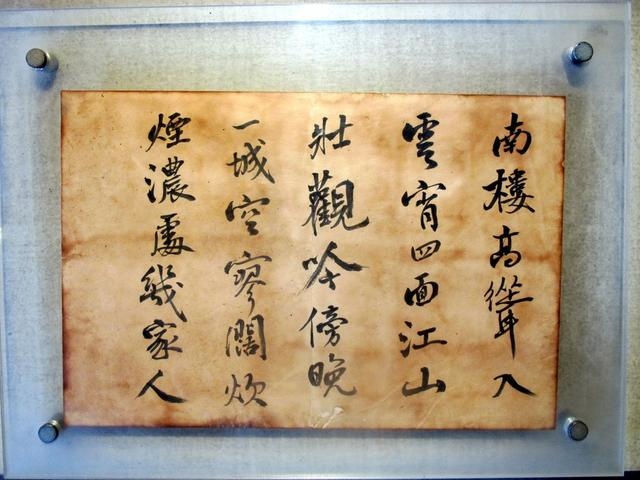 南樓高聳入
雲宵四面江山
壯觀吟傍晚
一城空寥闊炊
煙濃處幾家人